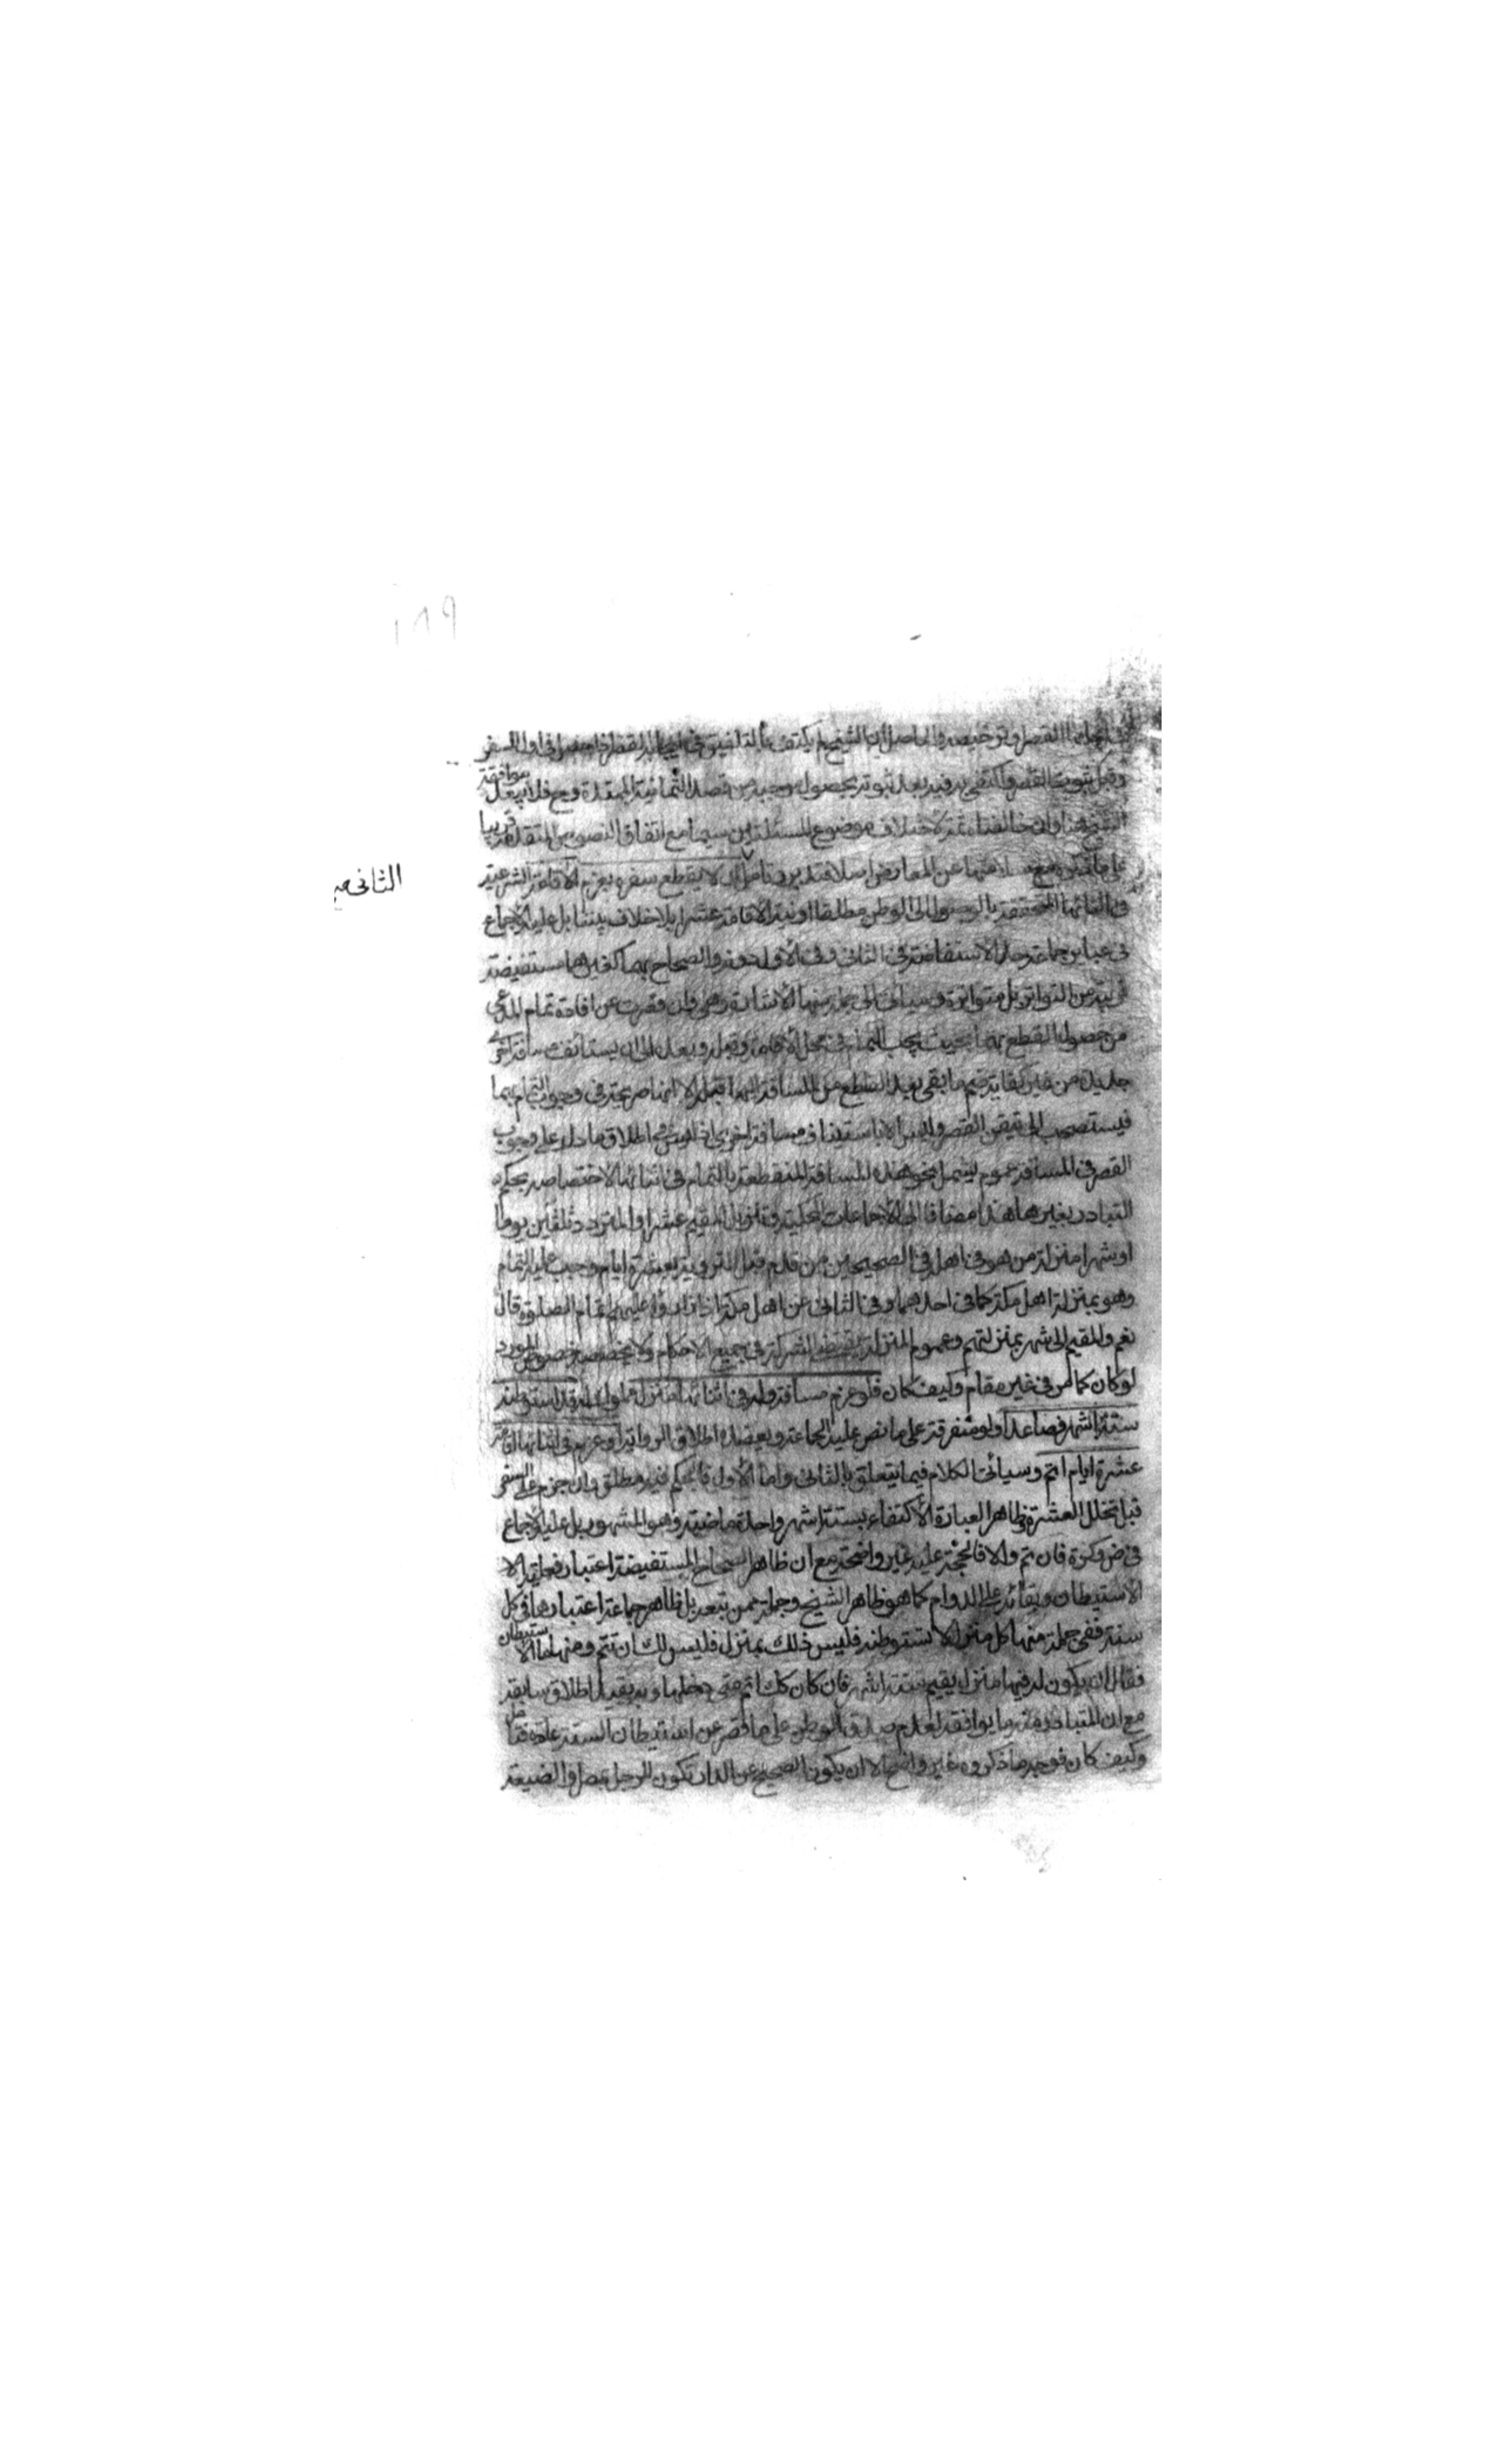 ١٨٩
في ايجابها القصر وترخيصه والحاصل ان الشيخ لم يكتف بالتلفيق في ايجابه القصر اذا حصل في اول السفر
وقبل ثبوت القصر واكتفى به فيه بعد ثبوته بحصول موجبه من قصد الثمانية الممتدة وح فلا يبعد موافقة
الشيخ هنا وان خالفناه ثمة لاختلاف موضوع المسئلتين سيما مع اتفاق النصوص المتقدمة قريبا
على ما ذكره مع سلامتها عن المعارض اصلا فتدبر وتامل ان لا يقطع سفره بعزم الاقامة الشرعية
الثانى
في اثنائها المتحققة بالوصول الى الوطن مطلقا او نية الاقامة عشرا بلا خلاف بيننا بل عليه الاجماع
في عباير جماعة حد الاستفاضة في الثاني وفي الاول دونه والصحاح بهما كغيرهما مستفيضة
قريبة من التواتر بل متواترة وسياتي الى جملة منها الاشارة وهي وان قصرت عن افادة تمام المدعى
من حصول القطع بهما بحيث يجب التمام في محل الاقامة وقبله وبعده الى ان يستانف مسافة اخرى
جديدة من غير كفاية ضم ما بقي بعد القطع من المسافة اليها قبله الا انها صريحة في وجوب التمام بهما
فيستصحب الى تيقن القصر وليس الا باستيناف مسافة اخرى اذ ليس في اطلاق ما دل على وجوب
القصر في المسافة عموم يشمل نحو هذه المسافة المنقطعة بالتمام في اثنائها لاختصاصه بحكم
التبادر بغيرها هذا مضافا الى الاجماعات المحكية وتنزيل المقيم عشرا والمتردد ثلثين يوما
او شهرا منزلة من هو في اهله في الصحيحين من قدم قبل التروية بعشرة ايام وجب عليه التمام
وهو بمنزلة اهل مكة كما في احدهما وفي الثاني عن اهل مكة اذا زاروا عليهم اتمام الصلوة وقال
نعم والمقيم الى شهر بمنزلتهم وعموم المنزلة يقتضي الشركة في جميع الاحكام ولا يخصصه خصوص المورد
لو كان كما هي في غير مقام وكيف كان فلو عزم مسافة وله في اثنائها منزل مملوك له قد استوطنه
ستة اشهر فصاعدا ولو متفرقة على ما نص عليه الجماعة ويعضده اطلاق الرواية او عزم في اثنائها اقامة
عشرة ايام اتم وسياتي الكلام فيما يتعلق بالثاني واما الاول فالحكم فيه مطلق وان جزم على السفر
قبل تخلل العشرة وظاهر العبارة الاكتفاء بستة اشهر واحدة ماضية وهو المشهور بل عليه الاجماع
في ض وكرة فان تم والا فالحجة عليه غير واضحة مع ان ظاهر الصحاح المستفيضة اعتبار فعلية الا
الاستيطان وبقائه على الدوام كما هو ظاهر الشيخ وجملة ممن تبعه بل ظاهر جماعة اعتبارها في كل
سنة ففي جملة منها كل منزل لا تستوطنه فليس ذلك بمنزل فليس لك ان تتم ومنها ما الاستيطان
فقال ان يكون له فيها منزل يقيم ستة اشهر فان كان كك اتم متى دخلها وبه يقيد اطلاق سابقه
مع ان المتبادر منه ما يوافقه لعدم صدق الوطن على ما قصر عن استيطان الستة عادة فتامل
وكيف كان فوجه ما ذكروه غير واضح الا ان يكون الصحيح عن الدار تكون للرجل بمصر والضيعة